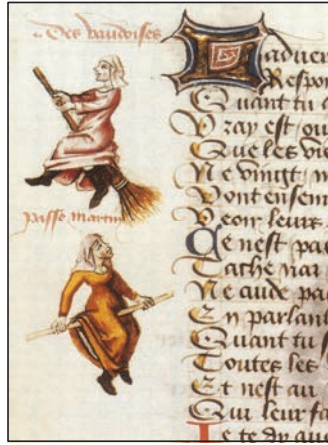 Des vaudoises
passe martin
Laduer
Respon
Quant tu
Vray est ou
Que les vie
Ne vingt
Vont ensem
Veoir leurs
Ce nest pas
Cache nai
Ne cuide pas
En parlant
Quant tu
Toutes les
Et nest au
Qui leur fa
Je te dy que